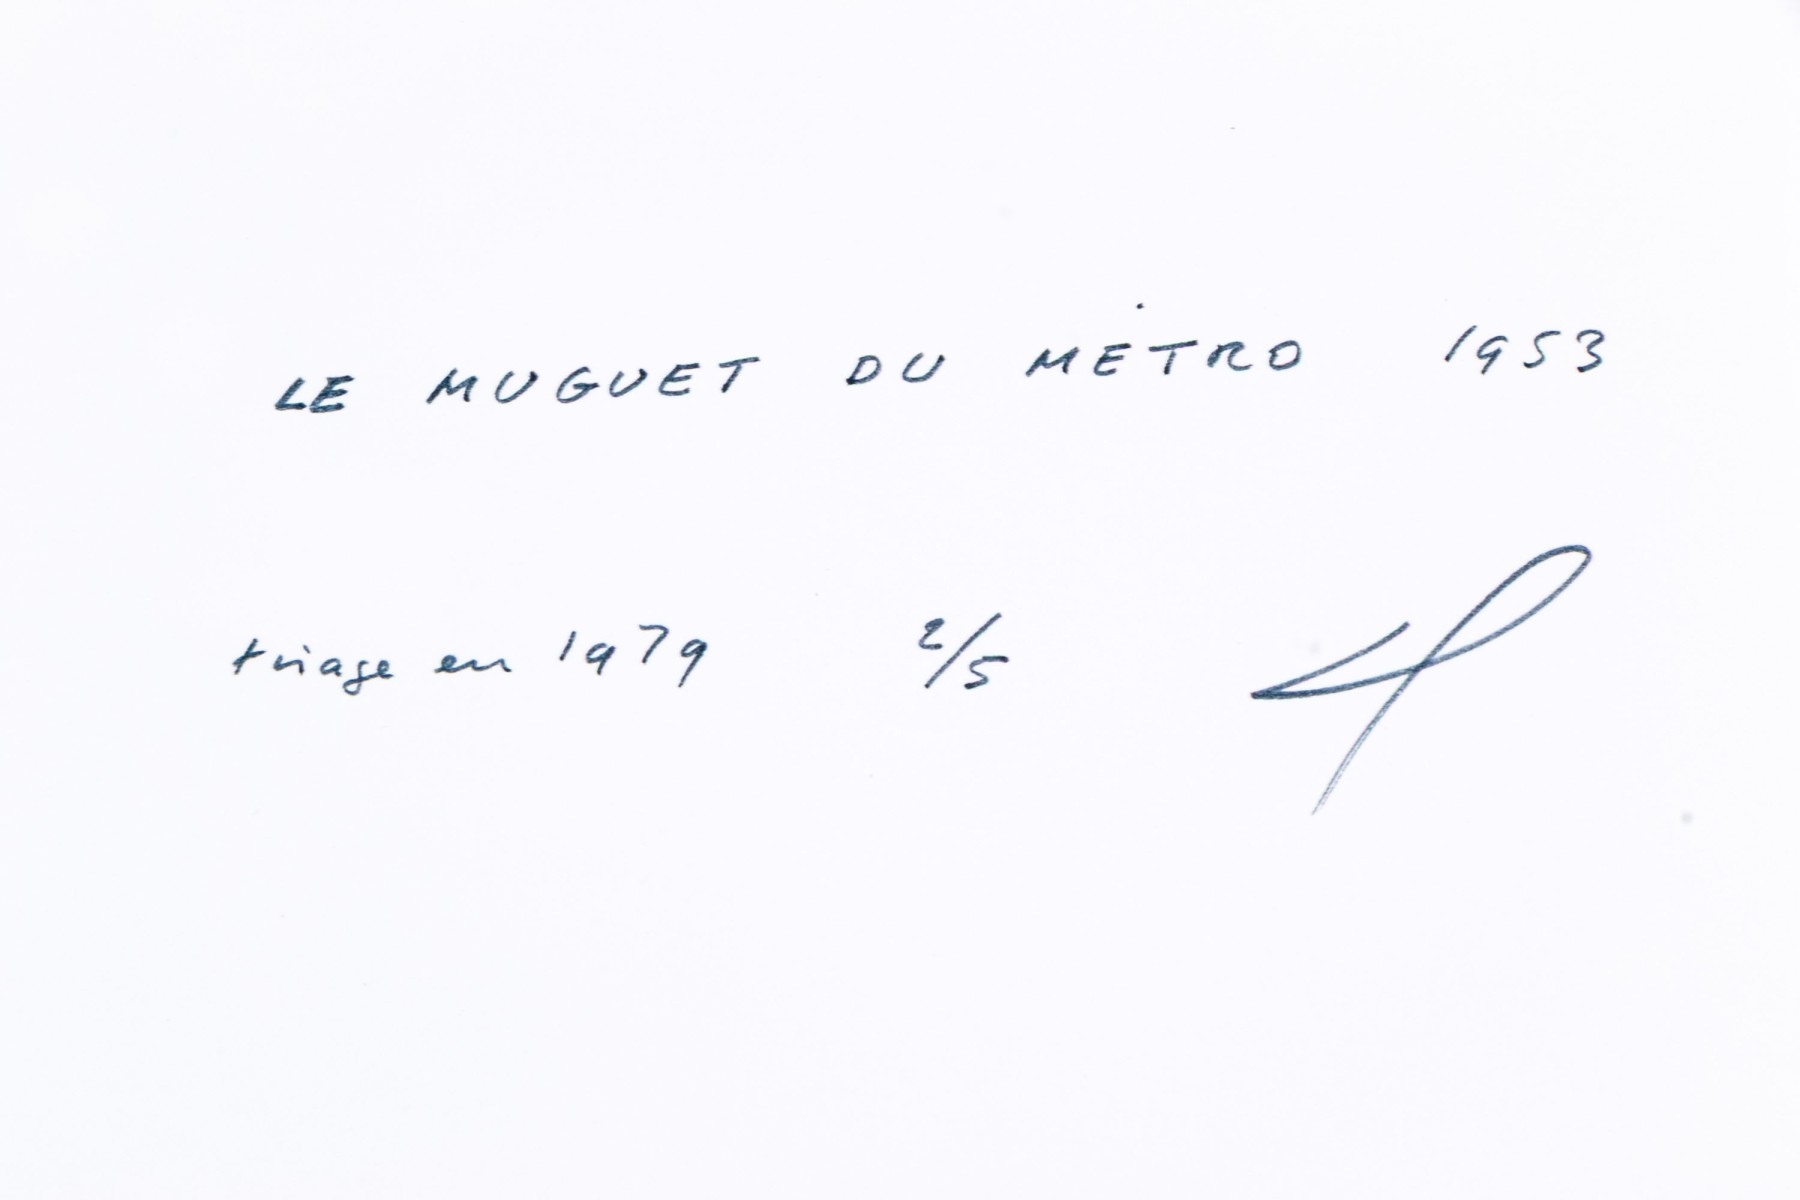 LE MUGUET DU MÉTRO 1953
tirage en 1979 2/5